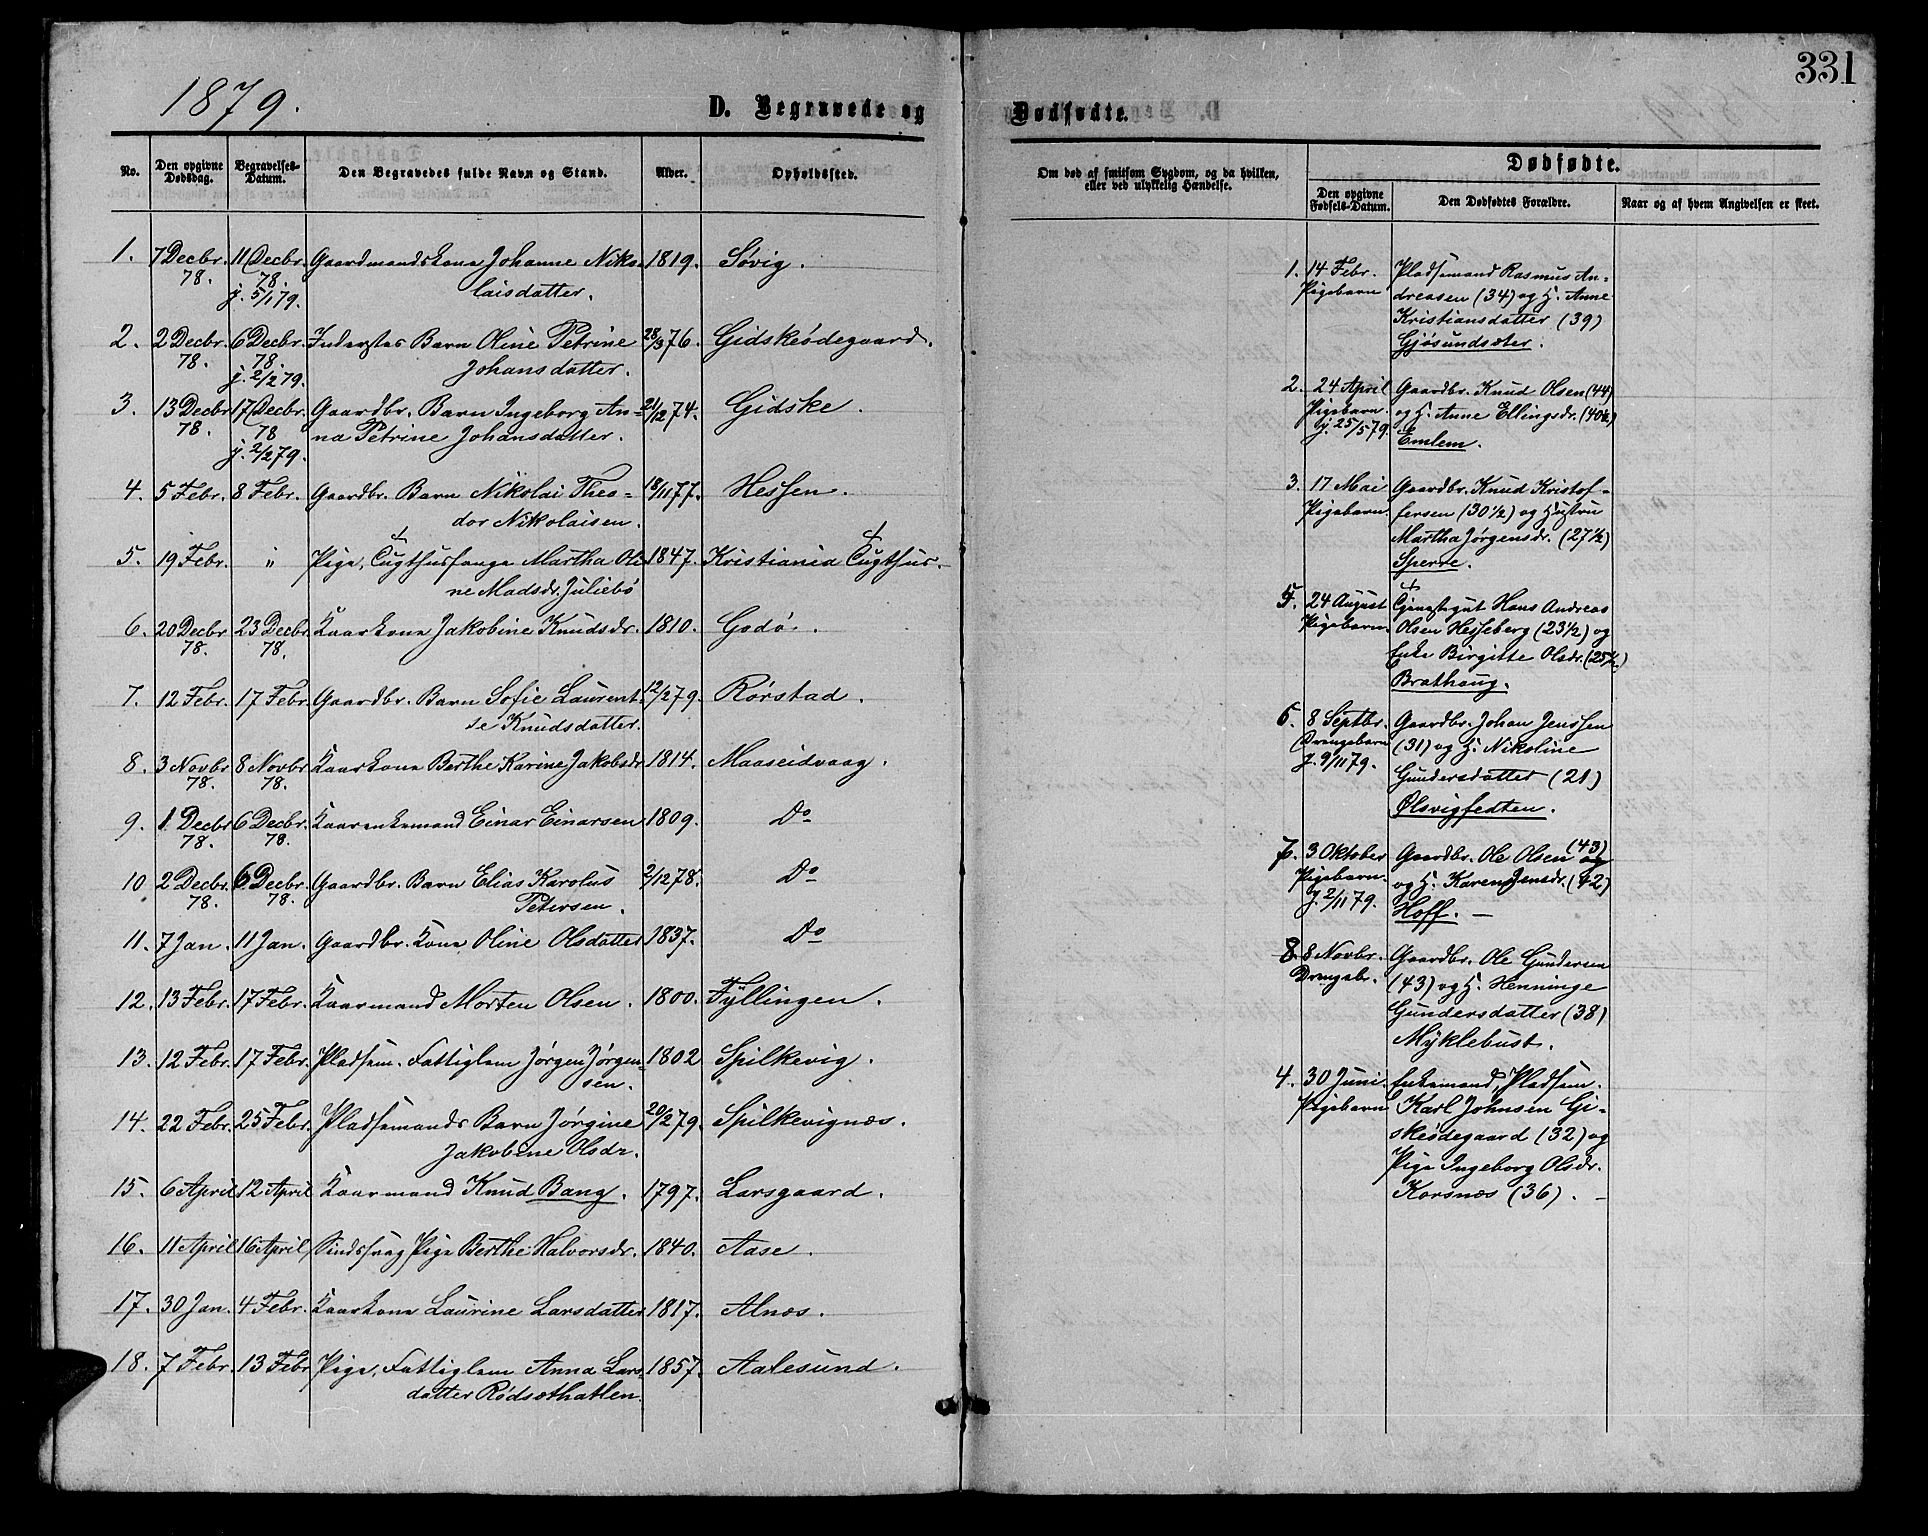 1879.
D. Begravede og
No.
Den opgivne Dødsdag.
Begravelses-Datum.
Den Begravedes fulde Navn og Stand.
Alder.
Opholdssted.
1. 7 Decbr. 11 Decbr. Gaardmandskone Johanne Niko- 1819. Søvig.
78. 78. laisdatter.
j. 5/1 79.
2. 2 Decbr. 6 Decbr. Inderstes Barn Oline Petrine 28/3 76. Gidskeødegaard.
78. 78. Johansdatter.
j. 2/2 79.
3. 13 Decbr 17 Decbr. Gaardbr. Barn Ingeborg An- 21/12 74. Gidske.
78. 78 na Petrine Johansdatter.
j. 2/2 79.
4. 5 Febr. 8 Febr. Gaardbr. Barn Nikolai Theo- 18/11 77. Hessen.
dor Nikolaisen.
5. 19 Febr. " Pige, Tugthusfange Martha Oli- 1847. Kristiania Tugthus.
ne Madsdr. Juliebø
6. 20 Decbr 23 Decbr. Kaarkone Jakobine Knudsdr. 1810. Godø.
78. 78.
7. 12 Febr. 17 Febr. Gaardbr. Barn Sofie Laurent- 12/2 79. Rørstad.
se Knudsdatter.
8. 3 Novbr 8 Novbr Kaarkone Berthe Karine Jakobsdr 1814. Maaseidvaag.
78. 78.
9. 1 Decbr 6 Decbr. Kaarenkemand Einar Einarsen 1809. Do
78. 78.
10. 2 Decbr. 6 Decbr. Gaardbr. Barn Elias Karolus 2/12 78. Do
78. 78. Petersen.
11. 7 Jan. 11 Jan. Gaardbr. Kone Oline Olsdatter 1837. Do
12. 13 Febr. 17 Febr. Kaarmand Morten Olsen. 1800. Fyllingen.
13. 12 Febr. 17 Febr. Pladsem. Fattiglem Jørgen Jørgen- 1802 Spilkevig.
sen.
14. 22 Febr. 25 Febr. Pladsemands Barn Jørgine 20/2 79. Spilkevignæs.
Jakobine Olsdr.
15. 6 April 12 April Kaarmand Knud Bang. 1797. Larsgaard.
16. 11 April 16 April Sindssvag Pige Berthe Halvorsdr. 1840. Aase.
17. 30 Jan. 4 Febr. Kaarkone Laurine Larsdatter 1817. Alnæs.
18. 7 Febr. 13 Febr Pige, Fattiglem Anna Lars- 1857. Aalesund.
datter Rødsæthatlen.
331
Dødfødte.
Om død af smitsom Sygdom, og da hvilken,
eller ved ulykkelig Hændelse.
Dødfødte.
Den opgivne Fødsels-Datum.
Den Dødfødtes Forældre.
Naar og af hvem Angivelsen er skeet.
1. 14 Febr. Pladsemand Rasmus An-
Pigebarn dreasen (34) og H. Anne
Kristiansdatter (39)
Gjøsundsæter.
2. 24 April Gaardbr. Knud Olsen (44)
Pigebarn. og H. Anne Ellingsdr. (40½)
j. 25/5 79. Emlem.
3. 17 Mai Gaardbr. Knud Kristof-
Pigebarn. fersen (30½) og Hustru
Martha Jørgensdr. (27½)
Sperre.
5. 24 August Tjenestegut Hans Andreas
Pigebarn. Olsen Hesseberg (23½) og
Enke Birgitte Olsdr. (25½)
Brathaug.
6. 8 Septbr. Gaardbr. Johan Jenssen
Drengebarn (31) og H. Nikoline
j. 9/11 79. Gundersdatter (21)
Ølsvigfedten.
7. 3 Oktober Gaardbr. Ole Olsen (43) og
Pigebarn. og H. Karen Jensdr. (42)
j. 2/11 79. Hoff. —
8. 8 Novbr. Gaardbr. Ole Gundersen
Drengebr. (43) og H. Henninge
Gundersdatter (38)
Myklebust.
4. 30 Juni. Enkemand, Pladsem.
Pigebarn Karl Johnsen Gi-
skeødegaard (32) og
Pige Ingeborg Olsdr.
Korsnæs (36). —